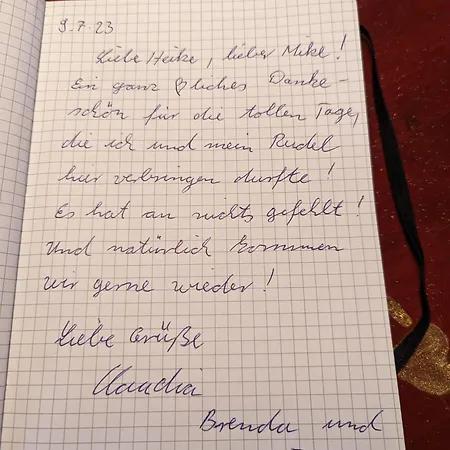 9.7.23
Liebe Heike, lieber Mike!
Ein ganz ♡liches Danke-
schön für die tollen Tage,
die ich und mein Rudel
hier verbringen durfte!
Es hat an nichts gefehlt!
Und natürlich kommen
wir gerne wieder!
Liebe Grüße
Claudia
Brenda und